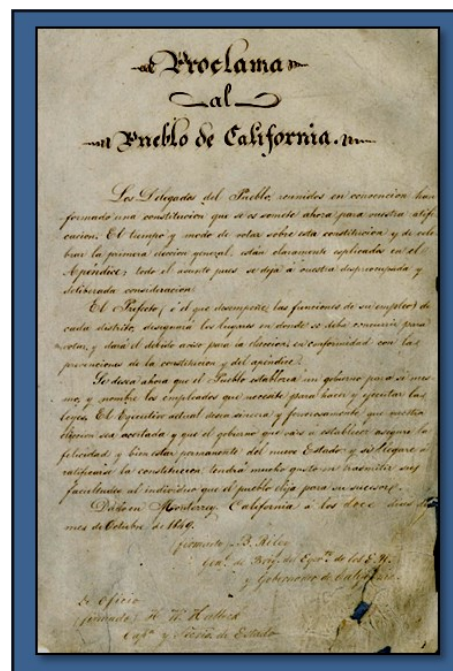 Proclama
al
Pueblo de California.
Los Delegados del Pueblo, reunidos en convencion han
formado una constitucion que se os somete ahora para vuestra
cacion. El tiempo y modo de votar sobre esta constitucion y de cele
brar la primera eleccion general, estan claramente esplicados en el
Apéndice; todo el asunto pues se deja á vuestra y
deliberada consideracion.
El Prefecto (ó el que desempeñe las funciones de su empleo) de
cada distrito, designará los lugares en donde se debe concurrir para
votar, y dará el debido aviso para la eleccion, en conformidad con las
prevenciones de la constitucion y del apéndice.
Se desea ahora que el Pueblo establezca un gobierno para sí mis
mo, y nombre los empleados que necesite para hacer y ejecutar las
leyes. El Ejecutivo actual desea sincera y que vuestra
eleccion sea acertada y que el gobierno que vais á establecer asegure la
felicidad y bien estar permanente del nuevo Estado y si llegare á
ratificarse la constitucion, tendrá mucho gusto en trasmitir sus
facultades al individuo que el pueblo elija para su sucesor.
Dado en Monterrey, California á los doce dias
mes de Octubre de 1849.
(firmado) B. Riley
Gral. de Brig. del Egto. de los E. U.
y Gobernador de California
De Oficio
(firmado) H. W. Halleck
Capn. y Secrio. de Estado